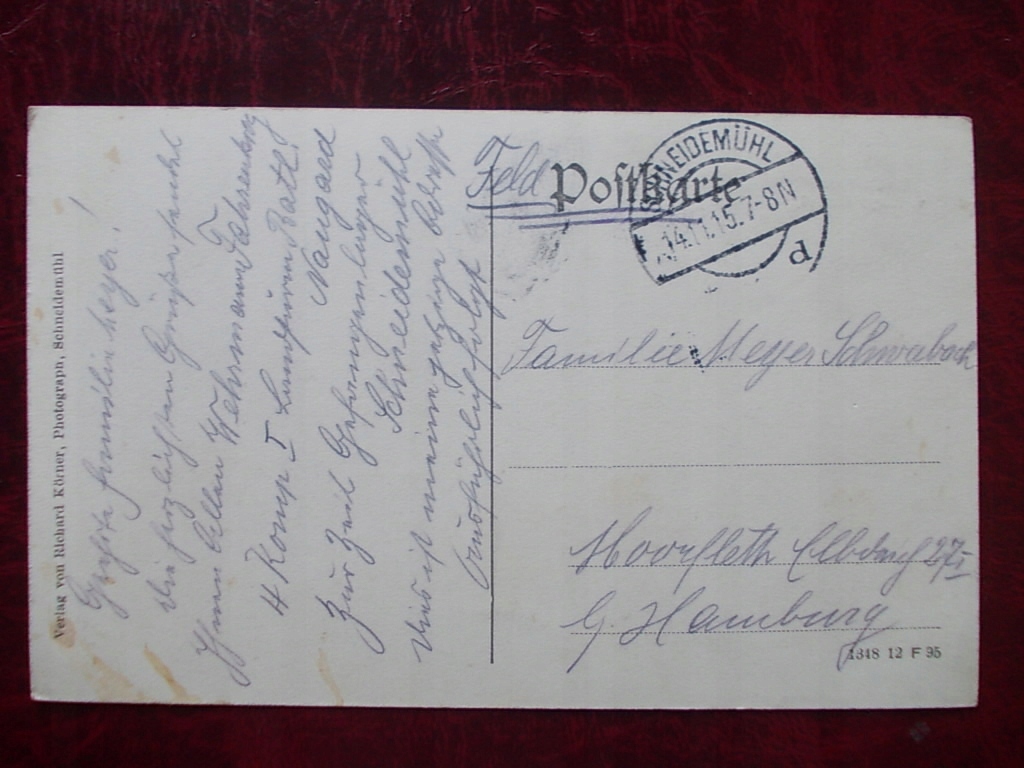 Feld Postkarte
SCHNEIDEMÜHL
14.11.15.7-8N
d
Geehrte Familie Meyer!
Die herzlichsten Grüße sendet
Ihnen Allen Wehrmann
4 Komp I Landsturm Batl.
Naugard
Zur Zeit Gefangenlager
Schneidemühl
Dies ist meine jetzige Adresse
Ausführlich folgt
Familie Meyer Schwabach
Moorfleth Elbdeich 27I
b. Hamburg
Verlag von Richard Körner, Photograph, Schneidemühl
1318 12 F 95